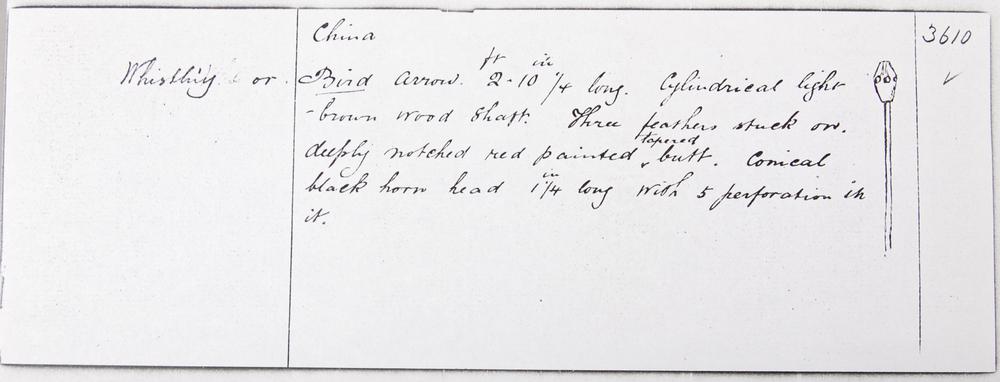 China
3610
Whistling or
Bird arrow. 2 ft - 10 1/4 in long. Cylindrical light
-brown wood shaft. Three feathers stuck on.
deeply notched red painted tapered butt. Conical
black horn head 1 1/4 in long with 5 perforation in
it.
✓